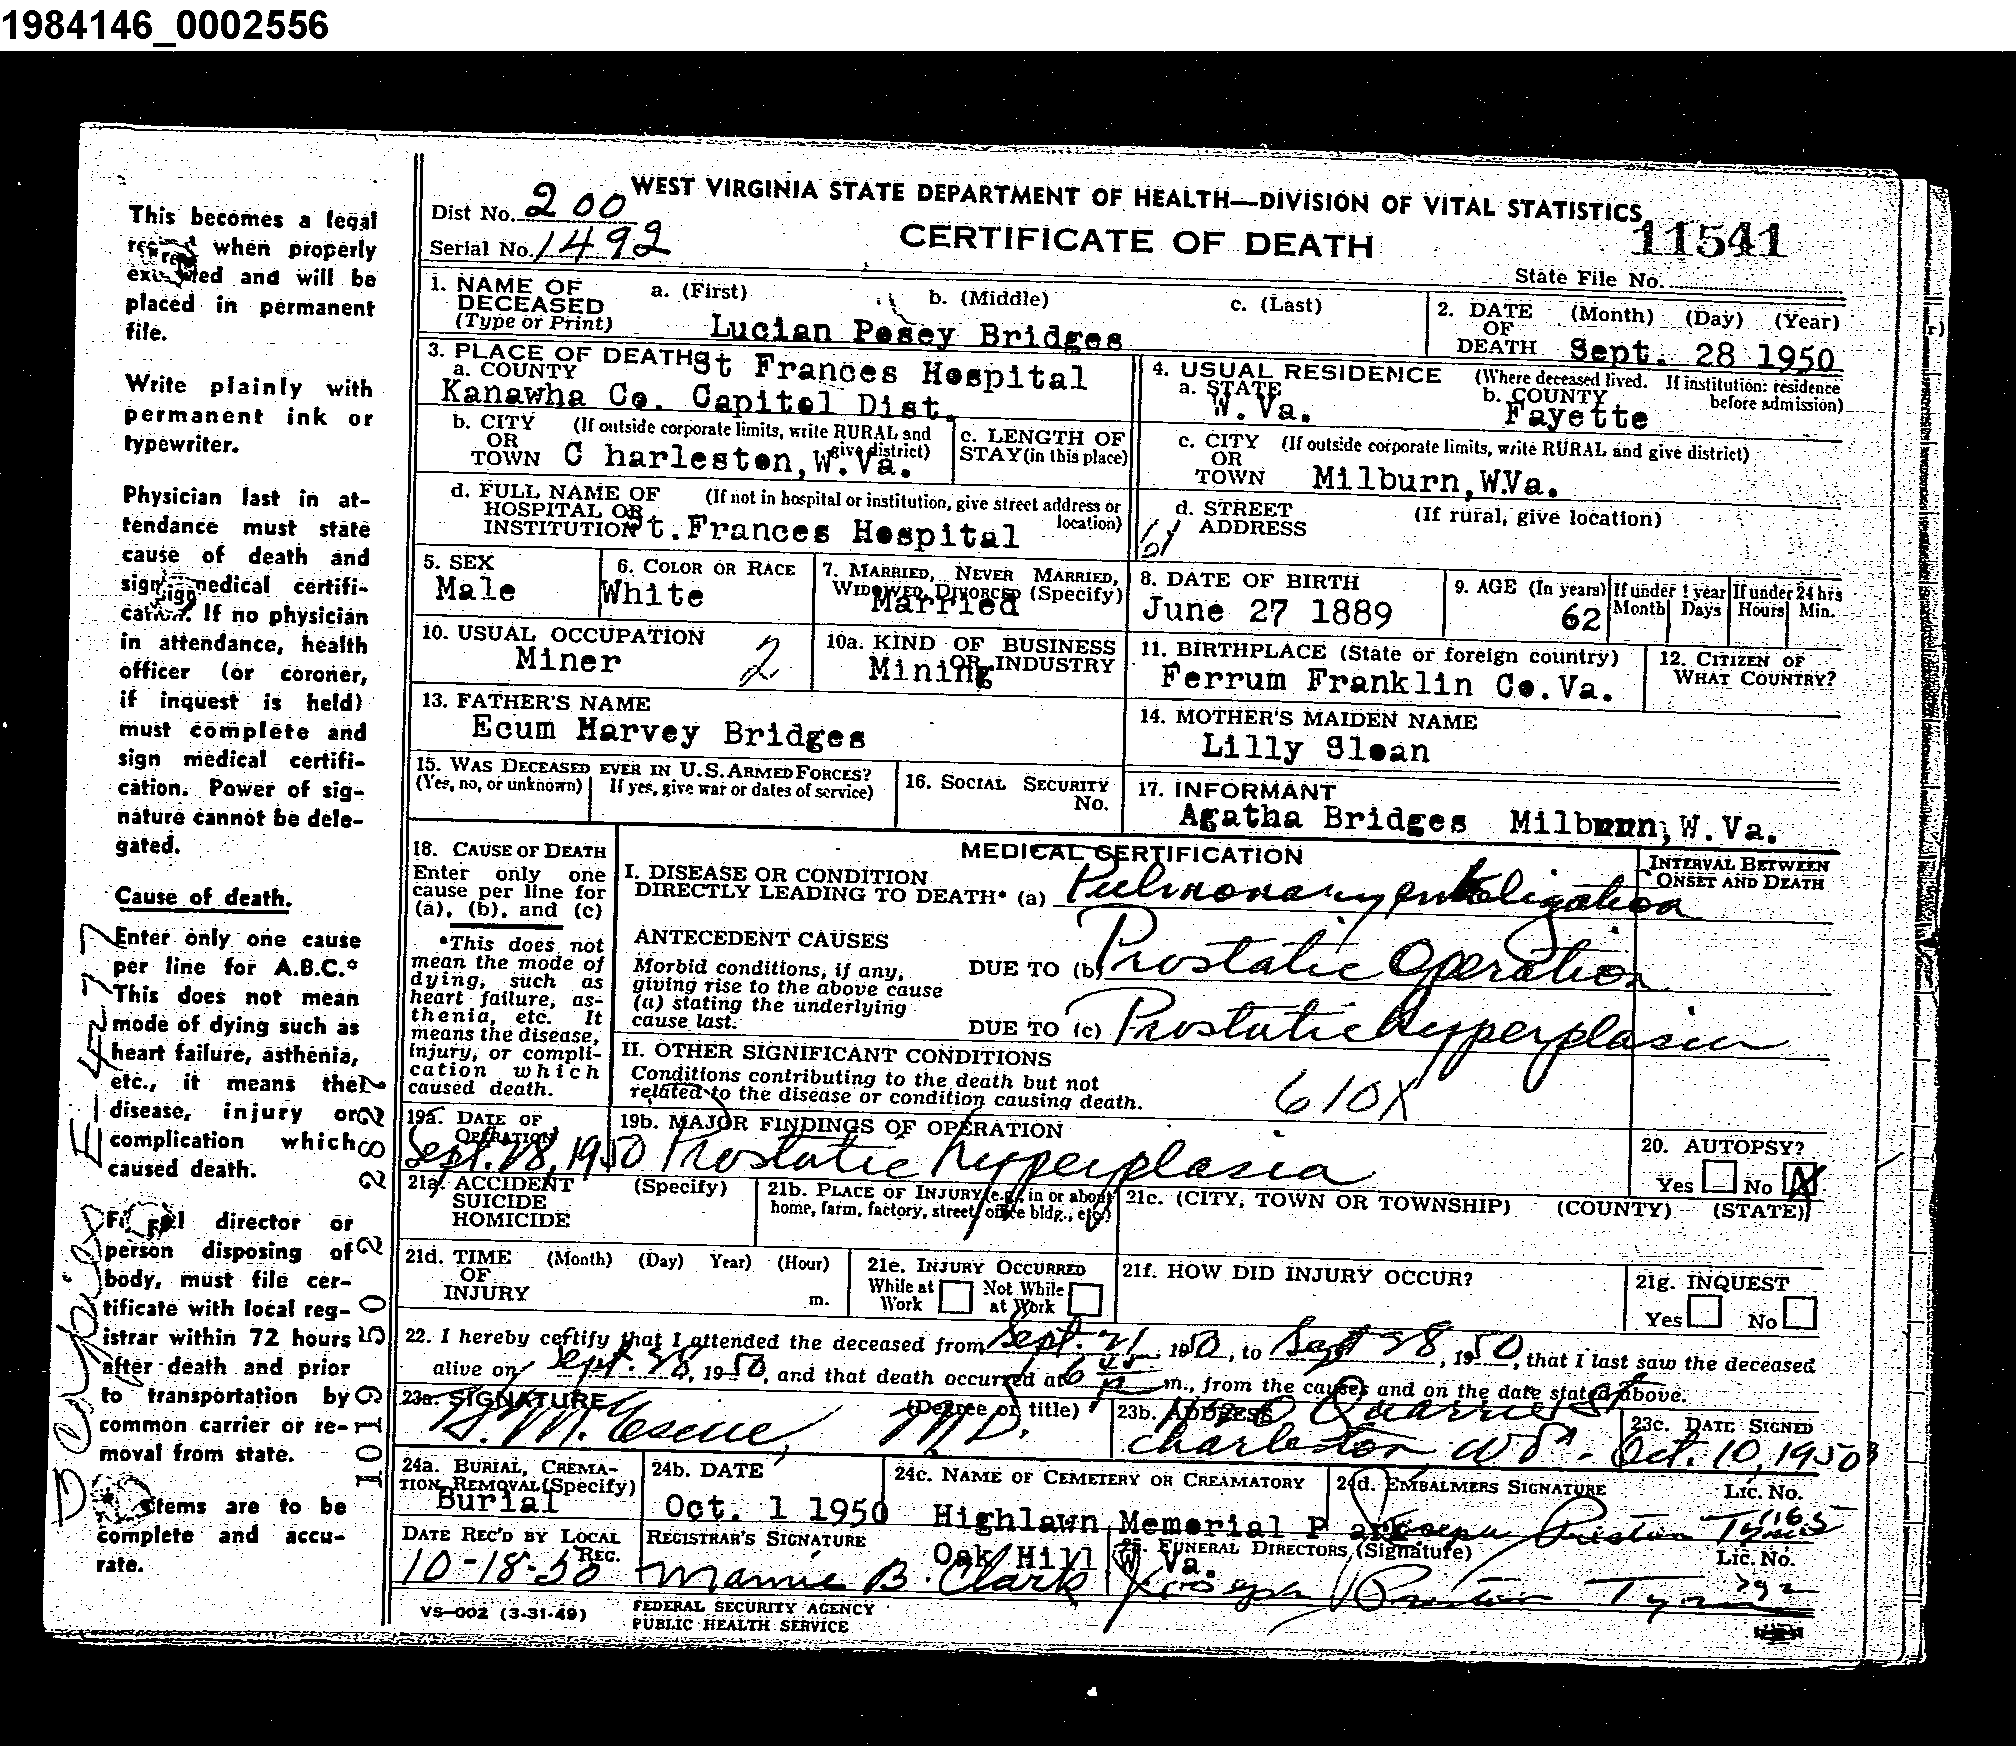 1984146_0002556
This becomes a legal
record when properly
executed and will be
placed in permanent
file.
Write plainly with
permanent ink or
typewriter.
Physician last in at-
tendance must state
cause of death and
sign medical certifi-
cation. If no physician
in attendance, health
officer (or coroner,
if inquest is held)
must complete and
sign medical certifi-
cation. Power of sig-
nature cannot be dele-
gated.
Cause of death.
Enter only one cause
per line for A.B.C.*
*This does not mean
mode of dying such as
heart failure, asthenia,
etc., it means the
disease, injury or
complication which
caused death.
director or
person disposing of
body, must file cer-
tificate with local reg-
istrar within 72 hours
after death and prior
to transportation by
common carrier or re-
moval from state.
items are to be
complete and accu-
rate.
WEST VIRGINIA STATE DEPARTMENT OF HEALTH—DIVISION OF VITAL STATISTICS
Dist No. 200
Serial No. 1492
CERTIFICATE OF DEATH
11541
State File No.
1. NAME OF DECEASED (Type or Print) a. (First) b. (Middle) c. (Last)
Lucian Posey Bridges
2. DATE OF DEATH (Month) (Day) (Year)
Sept. 28 1950
3. PLACE OF DEATH St Frances Hospital
a. COUNTY
Kanawha Co. Capitol Dist.
4. USUAL RESIDENCE (Where deceased lived. If institution: residence before admission)
a. STATE W.Va. b. COUNTY Fayette
b. CITY OR TOWN (If outside corporate limits, write RURAL and give district)
C harleston, W.Va.
c. LENGTH OF STAY (in this place)
c. CITY OR TOWN (If outside corporate limits, write RURAL and give district)
Milburn, W.Va.
d. FULL NAME OF HOSPITAL OR INSTITUTION (If not in hospital or institution, give street address or location)
St. Frances Hospital
d. STREET ADDRESS (If rural, give location)
5. SEX
Male
6. COLOR OR RACE
White
7. MARRIED, NEVER MARRIED, WIDOWED, DIVORCED (Specify)
Married
8. DATE OF BIRTH
June 27 1889
9. AGE (In years) If under 1 year If under 24 hrs
Month Days Hours Min.
62
10. USUAL OCCUPATION
Miner 2
10a. KIND OF BUSINESS OR INDUSTRY
Mining
11. BIRTHPLACE (State or foreign country)
Ferrum Franklin Co. Va.
12. CITIZEN OF WHAT COUNTRY?
13. FATHER'S NAME
Ecum Harvey Bridges
14. MOTHER'S MAIDEN NAME
Lilly Sloan
15. WAS DECEASED EVER IN U.S. ARMED FORCES?
(Yes, no, or unknown) If yes, give war or dates of service)
16. SOCIAL SECURITY No.
17. INFORMANT
Agatha Bridges Milburn, W.Va.
18. CAUSE OF DEATH
Enter only one
cause per line for
(a), (b), and (c)
*This does not
mean the mode of
dying, such as
heart failure, as-
thenia, etc. It
means the disease,
injury, or compli-
cation which
caused death.
MEDICAL CERTIFICATION
INTERVAL BETWEEN ONSET AND DEATH
I. DISEASE OR CONDITION
DIRECTLY LEADING TO DEATH* (a) Pulmonary
ANTECEDENT CAUSES
Morbid conditions, if any,
giving rise to the above cause
(a) stating the underlying
cause last.
DUE TO (b) Prostatic Operation
DUE TO (c) Prostatic hyperplasia
II. OTHER SIGNIFICANT CONDITIONS
Conditions contributing to the death but not
related to the disease or condition causing death.
610X
19a. DATE OF OPERATION
Sept. 28, 1950
19b. MAJOR FINDINGS OF OPERATION
Prostatic hyperplasia
20. AUTOPSY?
Yes No X
21a. ACCIDENT SUICIDE HOMICIDE (Specify)
21b. PLACE OF INJURY (e.g., in or about
home, farm, factory, street, office bldg., etc.)
21c. (CITY, TOWN OR TOWNSHIP) (COUNTY) (STATE)
21d. TIME OF INJURY (Month) (Day) Year) (Hour)
m.
21e. INJURY OCCURRED
While at Work Not While at Work
21f. HOW DID INJURY OCCUR?
21g. INQUEST
Yes No
22. I hereby certify that I attended the deceased from Sept. 21 1950, to Sept 28, 1950, that I last saw the deceased
alive on Sept. 28, 1950, and that death occurred at 6 45 p m., from the causes and on the date stated above.
23a. SIGNATURE (Degree or title)
M.D.
23b. ADDRESS
Quarrier St
Charleston W Va.
23c. DATE SIGNED
Oct. 10, 1950
24a. BURIAL, CREMA-
TION, REMOVAL (Specify)
Burial
24b. DATE
Oct. 1 1950
24c. NAME OF CEMETERY OR CREAMATORY
Highlawn Memorial Park
Oak Hill W Va.
24d. EMBALMERS SIGNATURE Lic. No.
Joseph Preston Tyree 1165
DATE REC'D BY LOCAL REG.
10-18-50
REGISTRAR'S SIGNATURE
Mamie B. Clark
25. FUNERAL DIRECTORS (Signature) Lic. No.
Joseph Preston
VS-002 (3-31-49)
FEDERAL SECURITY AGENCY
PUBLIC HEALTH SERVICE